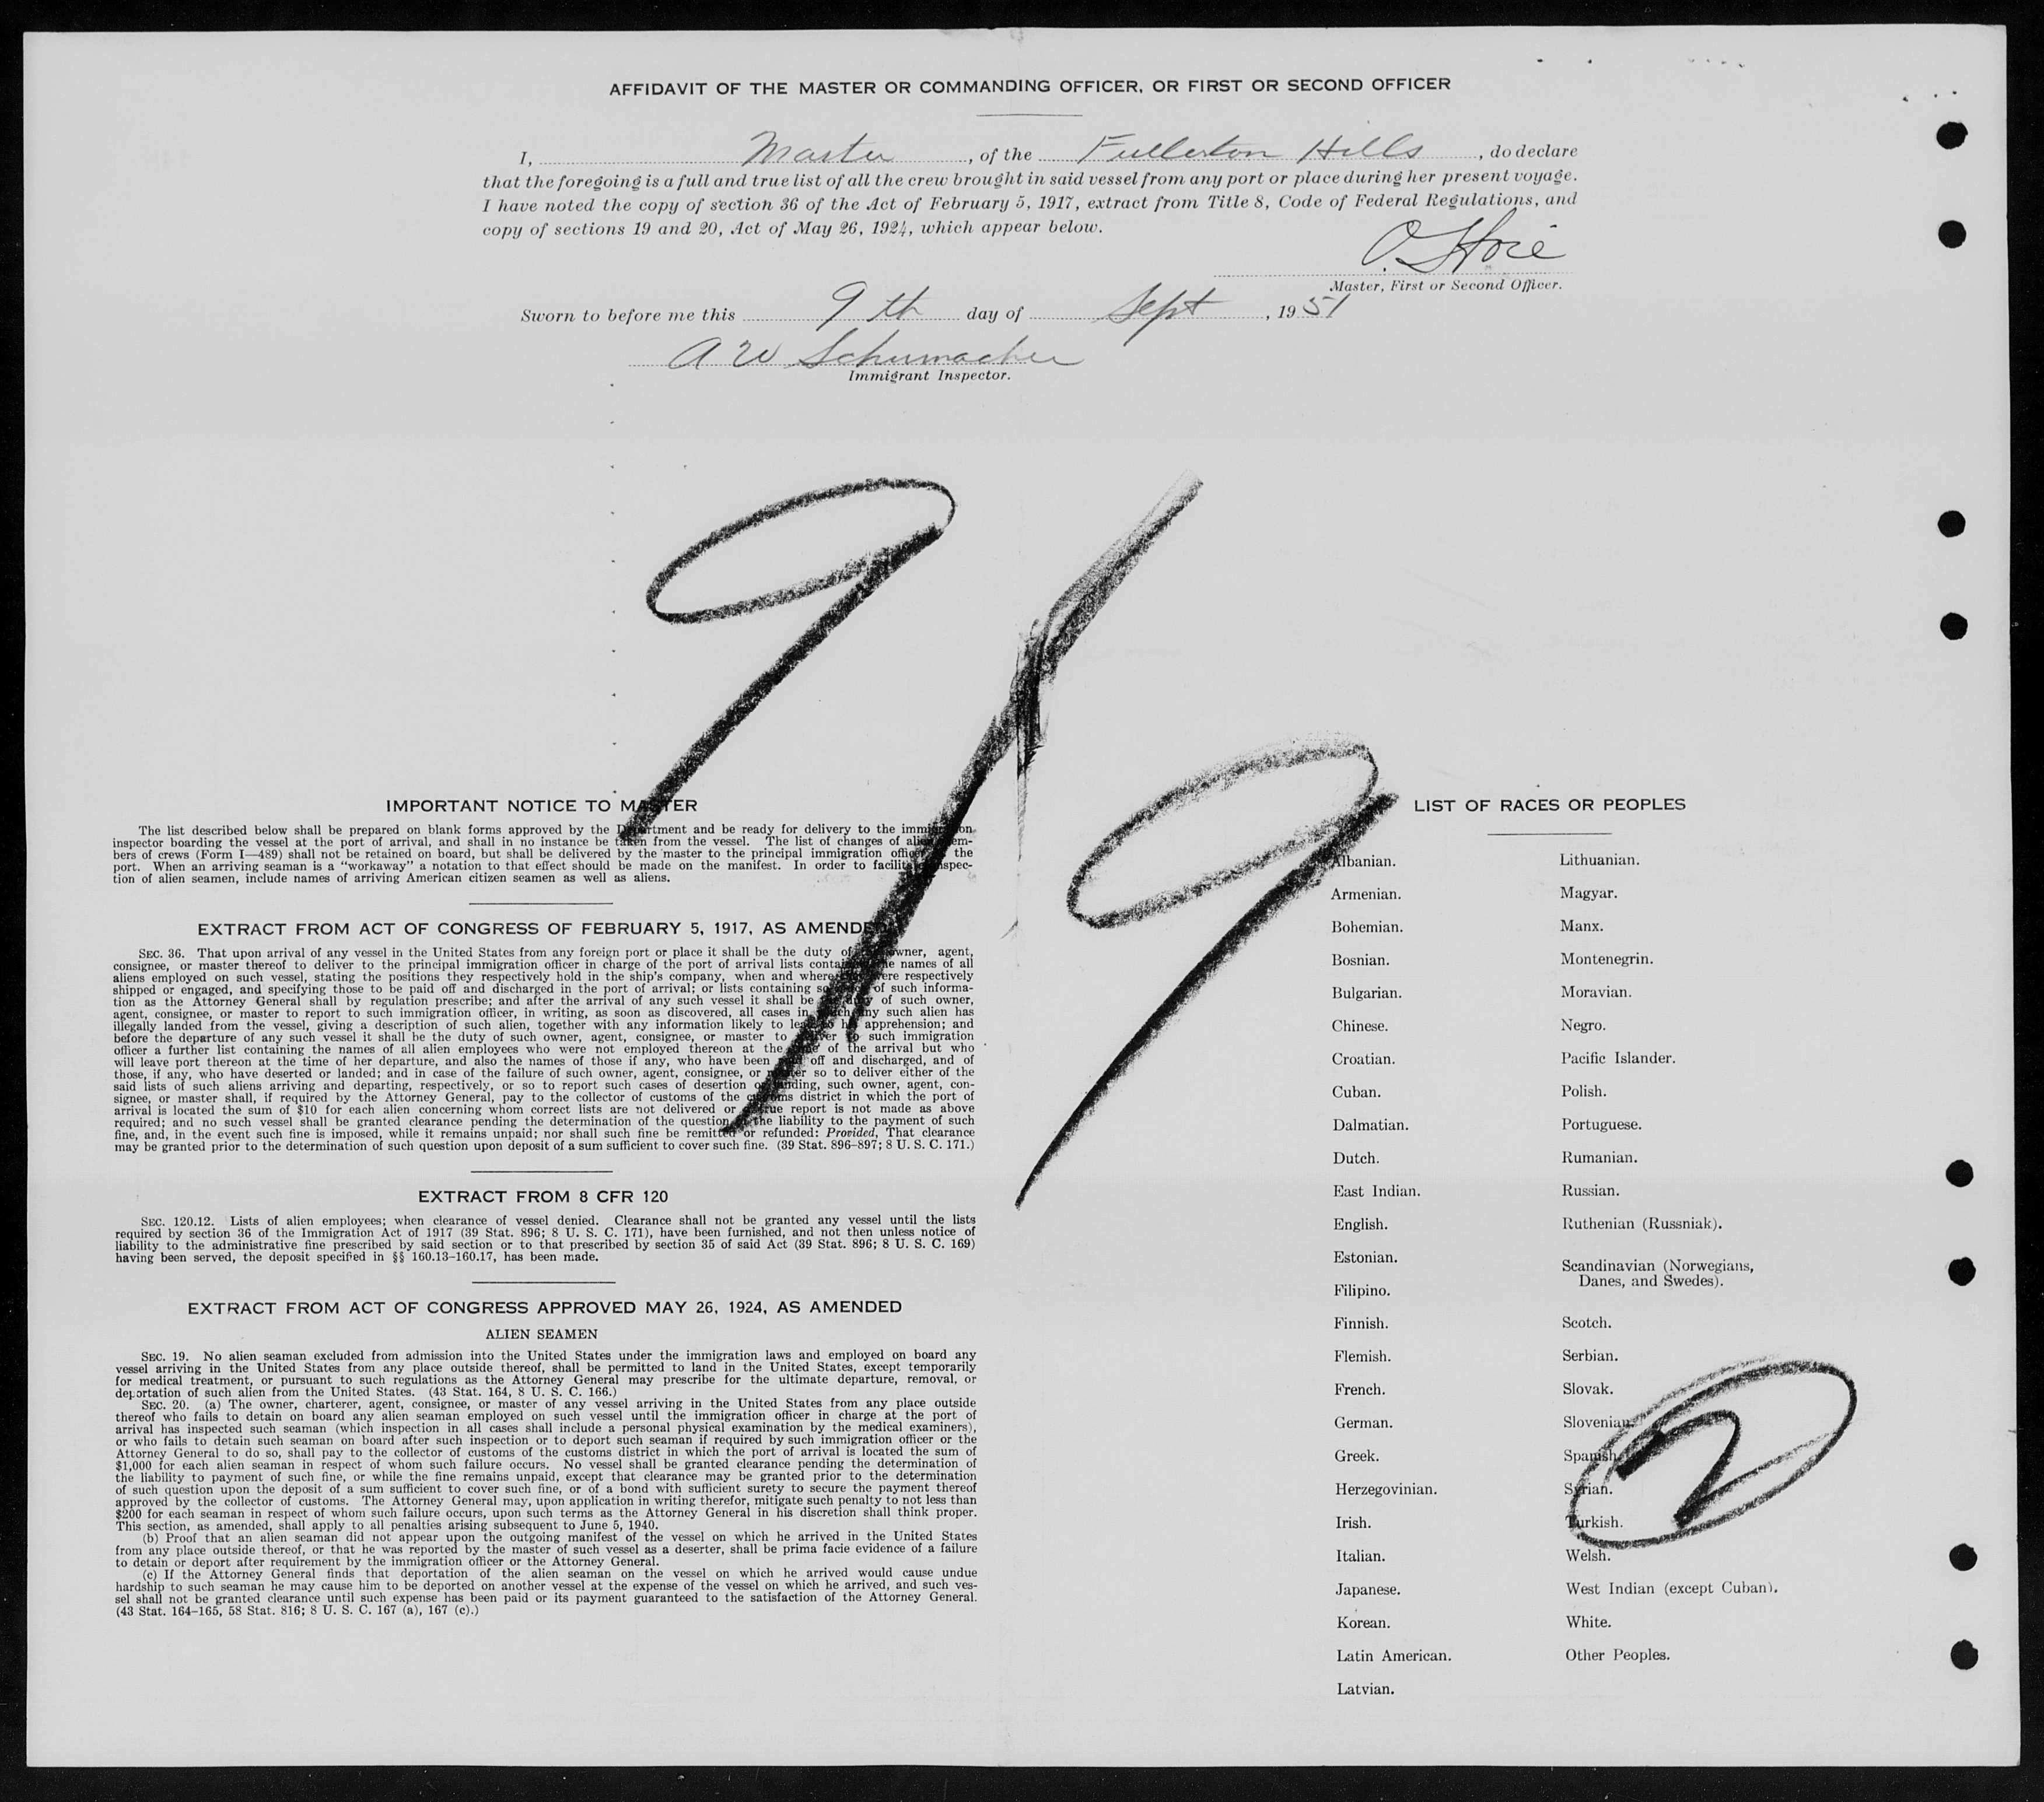 AFFIDAVIT OF THE MASTER OR COMMANDING OFFICER, OR FIRST OR SECOND OFFICER
I, Master, of the Fullerton Hills, do declare
that the foregoing is a full and true list of all the crew brought in said vessel from any port or place during her present voyage.
I have noted the copy of section 36 of the Act of February 5, 1917, extract from Title 8, Code of Federal Regulations, and
copy of sections 19 and 20, Act of May 26, 1924, which appear below.
Master, First or Second Officer.
Sworn to before me this 9th day of Sept, 1951
A W Schumacher
Immigrant Inspector.
9/9
IMPORTANT NOTICE TO MASTER
The list described below shall be prepared on blank forms approved by the Department and be ready for delivery to the immigration
inspector boarding the vessel at the port of arrival, and shall in no instance be taken from the vessel. The list of changes of alien mem-
bers of crews (Form I—489) shall not be retained on board, but shall be delivered by the master to the principal immigration officer the
port. When an arriving seaman is a "workaway" a notation to that effect should be made on the manifest. In order to facilitate inspec-
tion of alien seamen, include names of arriving American citizen seamen as well as aliens.
EXTRACT FROM ACT OF CONGRESS OF FEBRUARY 5, 1917, AS AMENDED
SEC. 36. That upon arrival of any vessel in the United States from any foreign port or place it shall be the duty of owner, agent,
consignee, or master thereof to deliver to the principal immigration officer in charge of the port of arrival lists containing the names of all
aliens employed on such vessel, stating the positions they respectively hold in the ship's company, when and where they were respectively
shipped or engaged, and specifying those to be paid off and discharged in the port of arrival; or lists containing so much of such informa-
tion as the Attorney General shall by regulation prescribe; and after the arrival of any such vessel it shall be the duty of such owner,
agent, consignee, or master to report to such immigration officer, in writing, as soon as discovered, all cases in which any such alien has
illegally landed from the vessel, giving a description of such alien, together with any information likely to lead to his apprehension; and
before the departure of any such vessel it shall be the duty of such owner, agent, consignee, or master to deliver to such immigration
officer a further list containing the names of all alien employees who were not employed thereon at the time of the arrival but who
will leave port thereon at the time of her departure, and also the names of those if any, who have been paid off and discharged, and of
those, if any, who have deserted or landed; and in case of the failure of such owner, agent, consignee, or master so to deliver either of the
said lists of such aliens arriving and departing, respectively, or so to report such cases of desertion or landing, such owner, agent, con-
signee, or master shall, if required by the Attorney General, pay to the collector of customs of the customs district in which the port of
arrival is located the sum of $10 for each alien concerning whom correct lists are not delivered or a true report is not made as above
required; and no such vessel shall be granted clearance pending the determination of the question of the liability to the payment of such
fine, and, in the event such fine is imposed, while it remains unpaid; nor shall such fine be remitted or refunded: Provided, That clearance
may be granted prior to the determination of such question upon deposit of a sum sufficient to cover such fine. (39 Stat. 896–897; 8 U. S. C. 171.)
EXTRACT FROM 8 CFR 120
SEC. 120.12. Lists of alien employees; when clearance of vessel denied. Clearance shall not be granted any vessel until the lists
required by section 36 of the Immigration Act of 1917 (39 Stat. 896; 8 U. S. C. 171), have been furnished, and not then unless notice of
liability to the administrative fine prescribed by said section or to that prescribed by section 35 of said Act (39 Stat. 896; 8 U. S. C. 169)
having been served, the deposit specified in §§ 160.13–160.17, has been made.
EXTRACT FROM ACT OF CONGRESS APPROVED MAY 26, 1924, AS AMENDED
ALIEN SEAMEN
SEC. 19. No alien seaman excluded from admission into the United States under the immigration laws and employed on board any
vessel arriving in the United States from any place outside thereof, shall be permitted to land in the United States, except temporarily
for medical treatment, or pursuant to such regulations as the Attorney General may prescribe for the ultimate departure, removal, or
deportation of such alien from the United States. (43 Stat. 164, 8 U. S. C. 166.)
SEC. 20. (a) The owner, charterer, agent, consignee, or master of any vessel arriving in the United States from any place outside
thereof who fails to detain on board any alien seaman employed on such vessel until the immigration officer in charge at the port of
arrival has inspected such seaman (which inspection in all cases shall include a personal physical examination by the medical examiners),
or who fails to detain such seaman on board after such inspection or to deport such seaman if required by such immigration officer or the
Attorney General to do so, shall pay to the collector of customs of the customs district in which the port of arrival is located the sum of
$1,000 for each alien seaman in respect of whom such failure occurs. No vessel shall be granted clearance pending the determination of
the liability to payment of such fine, or while the fine remains unpaid, except that clearance may be granted prior to the determination
of such question upon the deposit of a sum sufficient to cover such fine, or of a bond with sufficient surety to secure the payment thereof
approved by the collector of customs. The Attorney General may, upon application in writing therefor, mitigate such penalty to not less than
$200 for each seaman in respect of whom such failure occurs, upon such terms as the Attorney General in his discretion shall think proper.
This section, as amended, shall apply to all penalties arising subsequent to June 5, 1940.
(b) Proof that an alien seaman did not appear upon the outgoing manifest of the vessel on which he arrived in the United States
from any place outside thereof, or that he was reported by the master of such vessel as a deserter, shall be prima facie evidence of a failure
to detain or deport after requirement by the immigration officer or the Attorney General.
(c) If the Attorney General finds that deportation of the alien seaman on the vessel on which he arrived would cause undue
hardship to such seaman he may cause him to be deported on another vessel at the expense of the vessel on which he arrived, and such ves-
sel shall not be granted clearance until such expense has been paid or its payment guaranteed to the satisfaction of the Attorney General.
(43 Stat. 164–165, 58 Stat. 816; 8 U. S. C. 167 (a), 167 (c).)
LIST OF RACES OR PEOPLES
Albanian.
Armenian.
Bohemian.
Bosnian.
Bulgarian.
Chinese.
Croatian.
Cuban.
Dalmatian.
Dutch.
East Indian.
English.
Estonian.
Filipino.
Finnish.
Flemish.
French.
German.
Greek.
Herzegovinian.
Irish.
Italian.
Japanese.
Korean.
Latin American.
Latvian.
Lithuanian.
Magyar.
Manx.
Montenegrin.
Moravian.
Negro.
Pacific Islander.
Polish.
Portuguese.
Rumanian.
Russian.
Ruthenian (Russniak).
Scandinavian (Norwegians,
Danes, and Swedes).
Scotch.
Serbian.
Slovak.
Slovenian.
Spanish.
Syrian.
Turkish.
Welsh.
West Indian (except Cuban).
White.
Other Peoples.
2